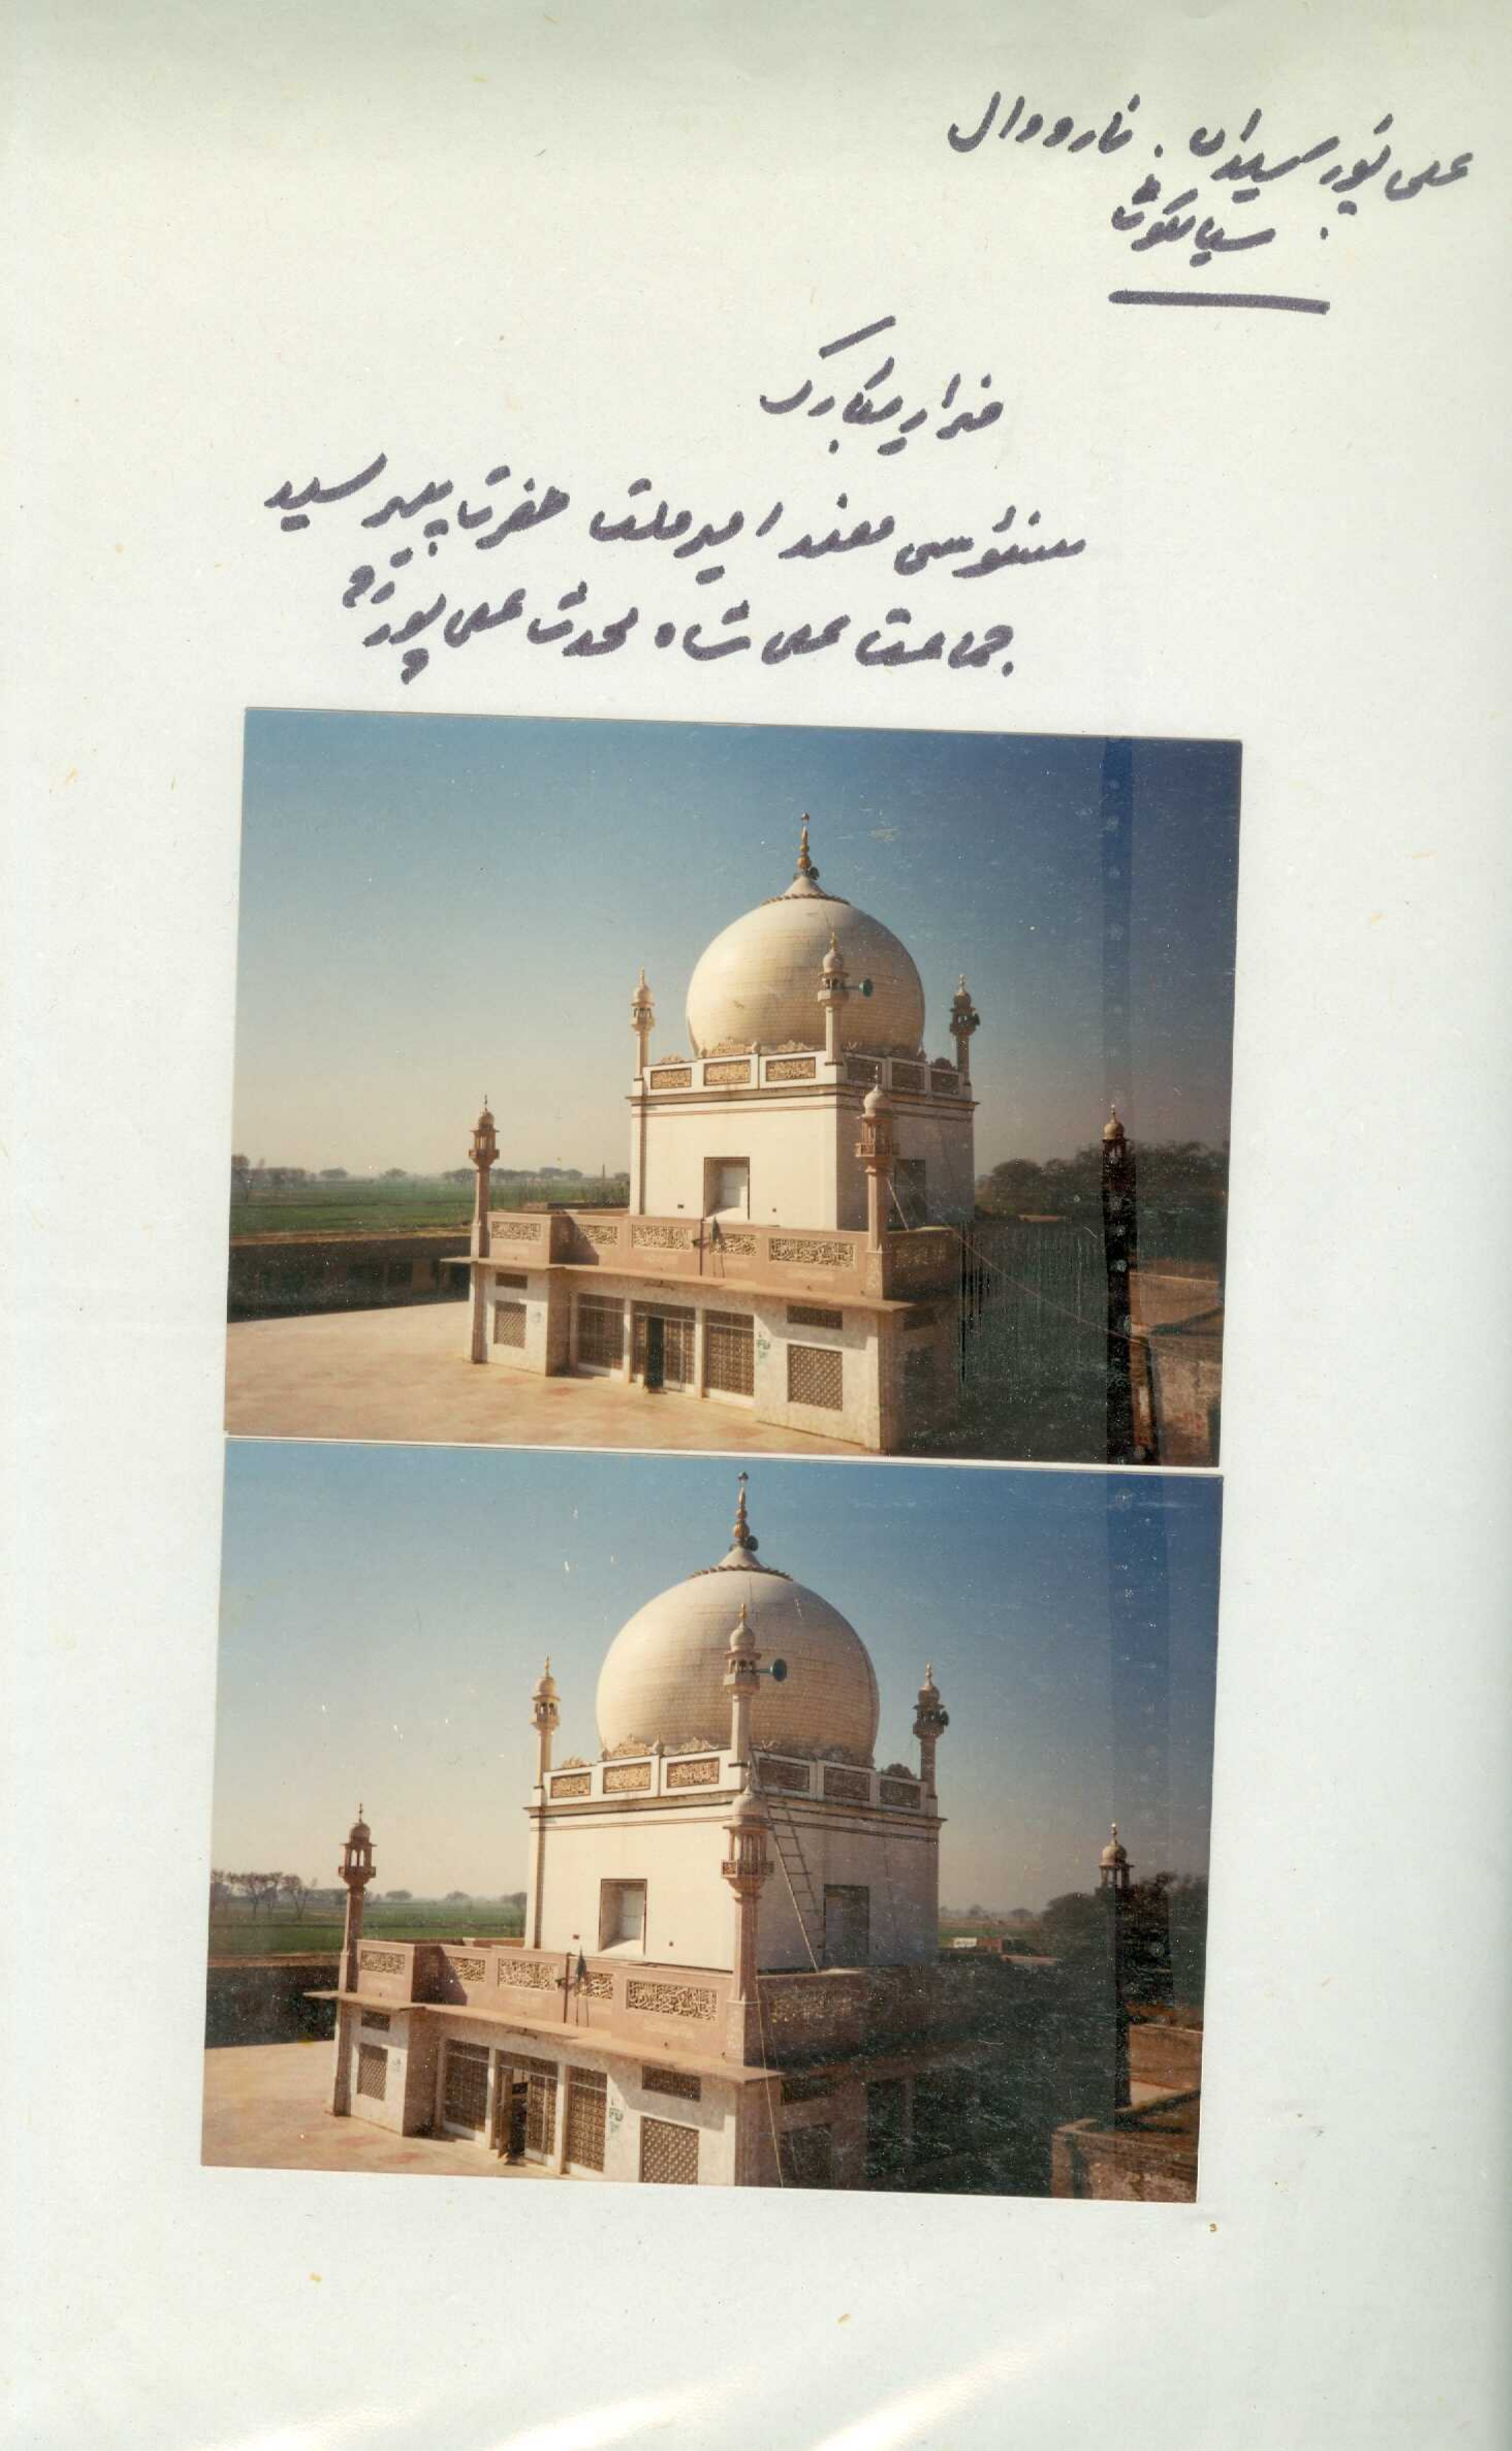 علی پور سیداں . نارووال
سیالکوٹ
مزار مبارک
سنوسی ہند امیر ملت حضرت پیر سید
جماعت علی شاہ محدث علی پوریؒ